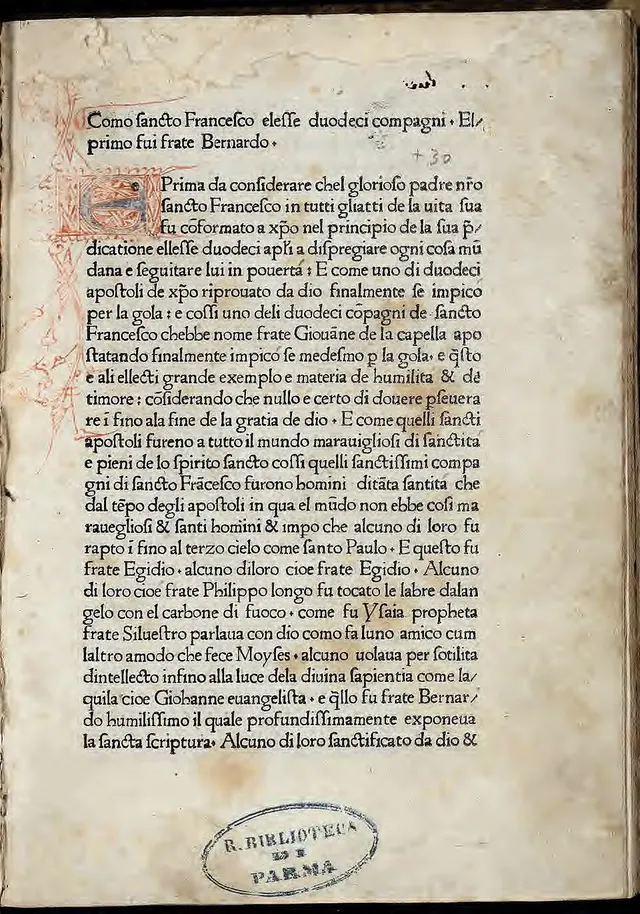 Como sancto Francesco elesse duodeci compagni · El/
primo fui frate Bernardo ·
+30
I Prima da considerare chel glorioso padre nr̄o
sancto Francesco in tutti gliatti de la uita sua
fu cōformato a xp̄o nel principio de la sua p̄/
dicatione ellesse duodeci apl̄i a dispregiare ogni cosa mū
dana e seguitare lui in pouertá : E come uno di duodeci
apostoli de xp̄o riprouato da dio finalmente se impico
per la gola : e cossi uno deli duodeci cōpagni de sancto
Francesco chebbe nome frate Giouāne de la capella apo
statando finalmente impico se medesmo p la gola· e q̄sto
e ali ellecti grande exemplo e materia de humilita & de
timore : cōsiderando che nullo e certo di douere pseuera
re ī fino ala fine de la gratia de dio · E come quelli sancti
apostoli fureno a tutto il mundo marauigliosi di sanctita
e pieni de lo spirito sancto cossi quelli sanctissimi compa
gni di sancto Frācesco furono homini ditāta santita che
dal tēpo degli apostoli in qua el mūdo non ebbe cosi ma
rauegliosi & santi homini & impo che alcuno di loro fu
rapto ī fino al terzo cielo come santo Paulo · E questo fu
frate Egidio · alcuno diloro cioe frate Egidio · Alcuno
di loro cioe frate Philippo longo fu tocato le labre dalan
gelo con el carbone di fuoco · come fu Ysaia propheta
frate Siluestro parlaua con dio como fa luno amico cum
laltro amodo che fece Moyses · alcuno uolaua per sotilita
dintellecto infino alla luce dela diuina sapientia come la/
quila cioe Giohanne euangelista · e q̄llo fu frate Bernar/
do humilissimo il quale profundissimamente exponeua
la sancta scriptura· Alcuno di loro sanctificato da dio &
R. BIBLIOTECA
DI
PARMA